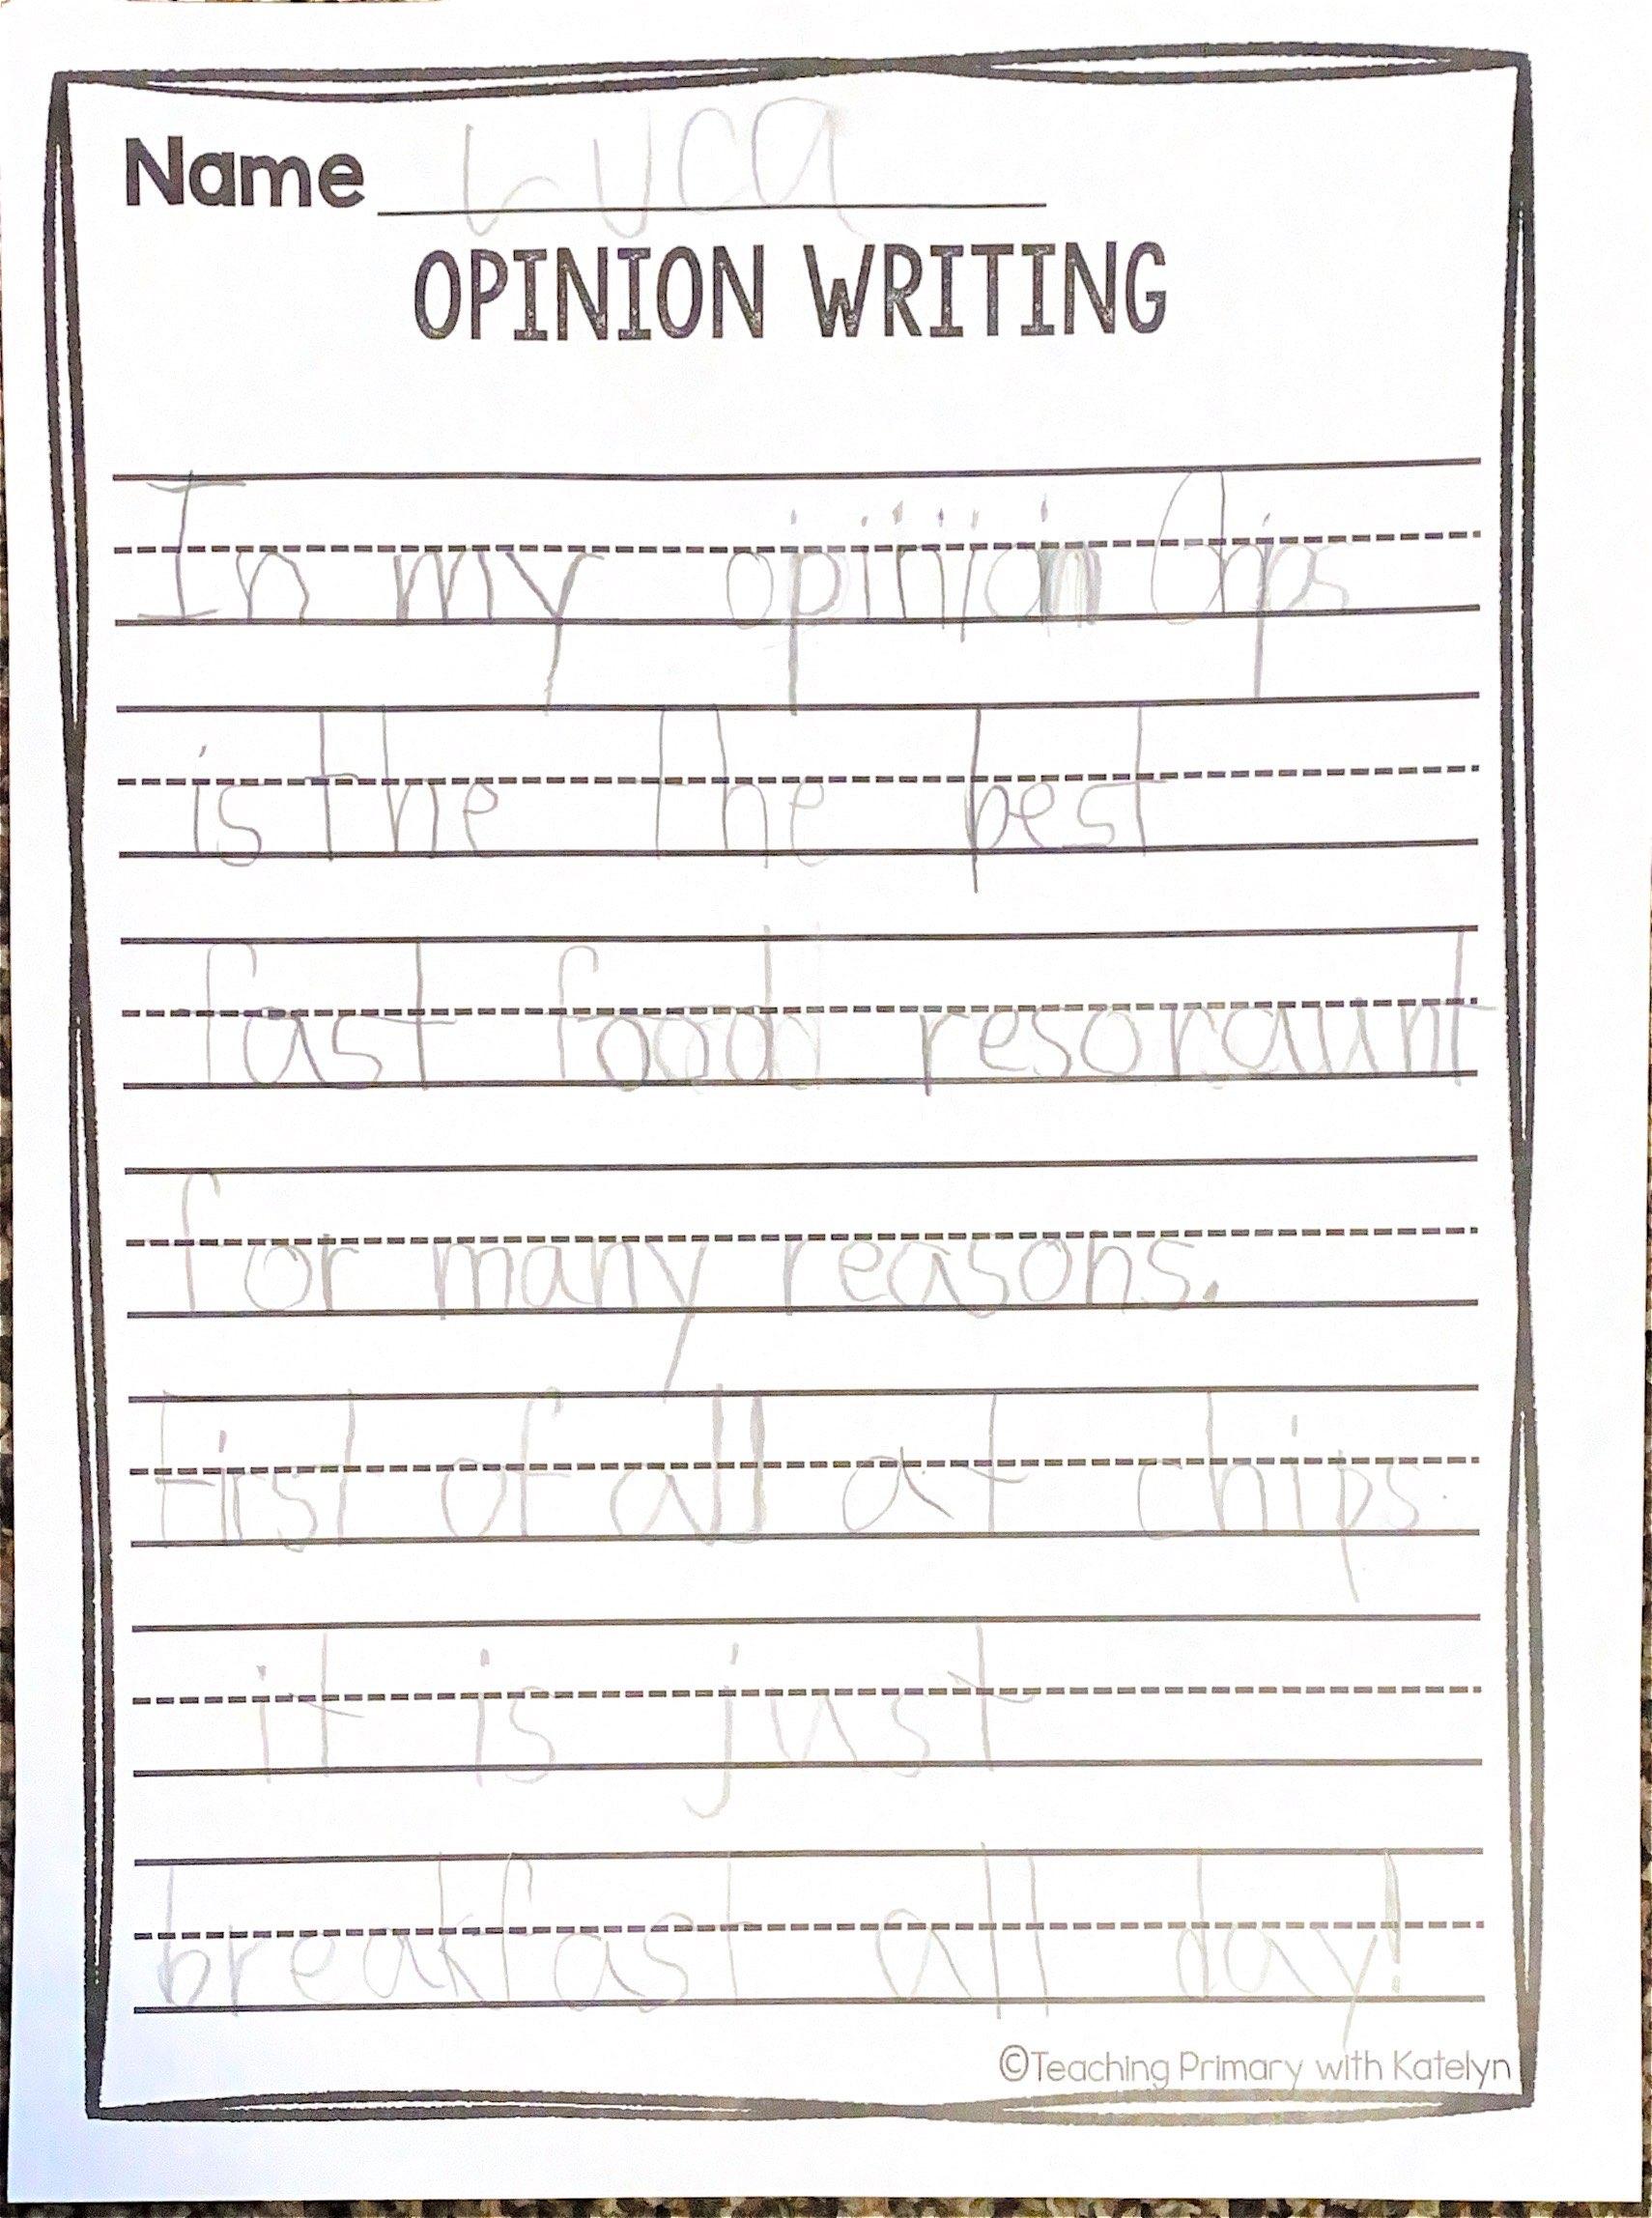 Name Luca
OPINION WRITING
In my opiniion Chips
is the the best
fast food resoraunt
for many reasons.
First of all at chips
it is just
breakfast all day!
©Teaching Primary with Katelyn